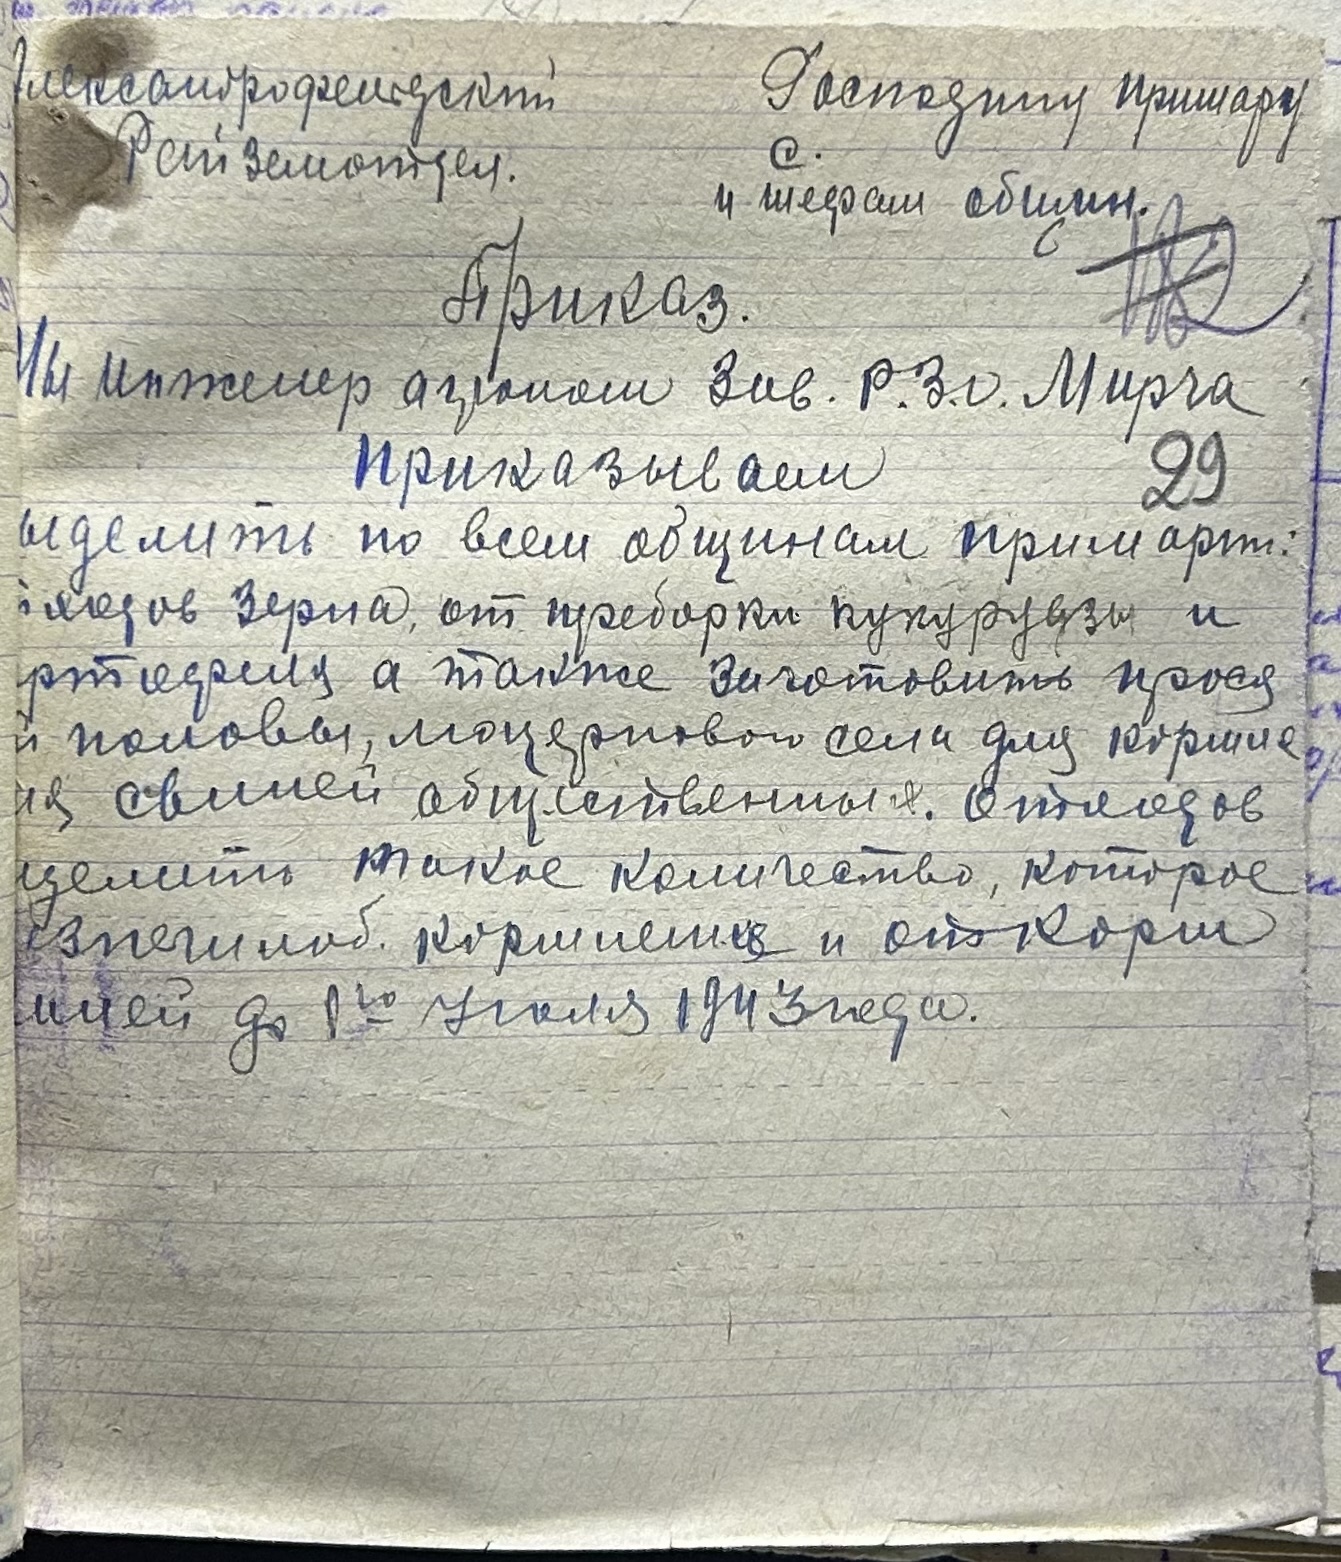 Александрофельдский Господину примару
Райземотдел. с.
и шефам общин.
Приказ.
Мы инженер агроном Зав. Р.З.О. Мирча
приказываем 29
ыделить по всем общинам примарт:
ходов зерна, от преборки кукурудзы и
ртофеля а также заготовить прося
й половы, люцернового сена для кормле
ия свиней общественных. Отходов
делить такое количество, которое
кормление и откорм
иней до 1го Июля 1943 года.